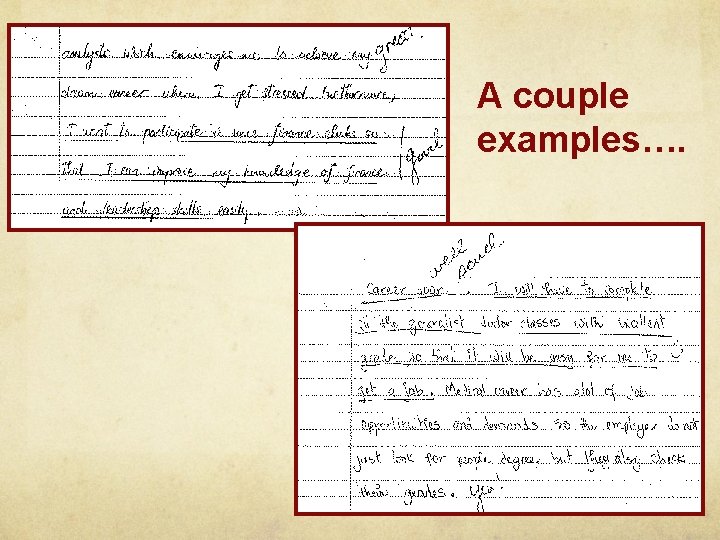 great!
analysts which encourages me to achieve my
dream career when I get stressed. Furthermore,
I want to participate in more finance clubs so
that I can improve my knowledge of finance
goal
and leadership skills easily.
A couple
examples….
well
Career soon. I will have to complete
in the generalist tutor classes with excellent
grades so that it will be easy for me to
get a job. Medical career has alot of job
opportunities and demands so the employer do not
just look for people degree but they also check
their grades. yes!